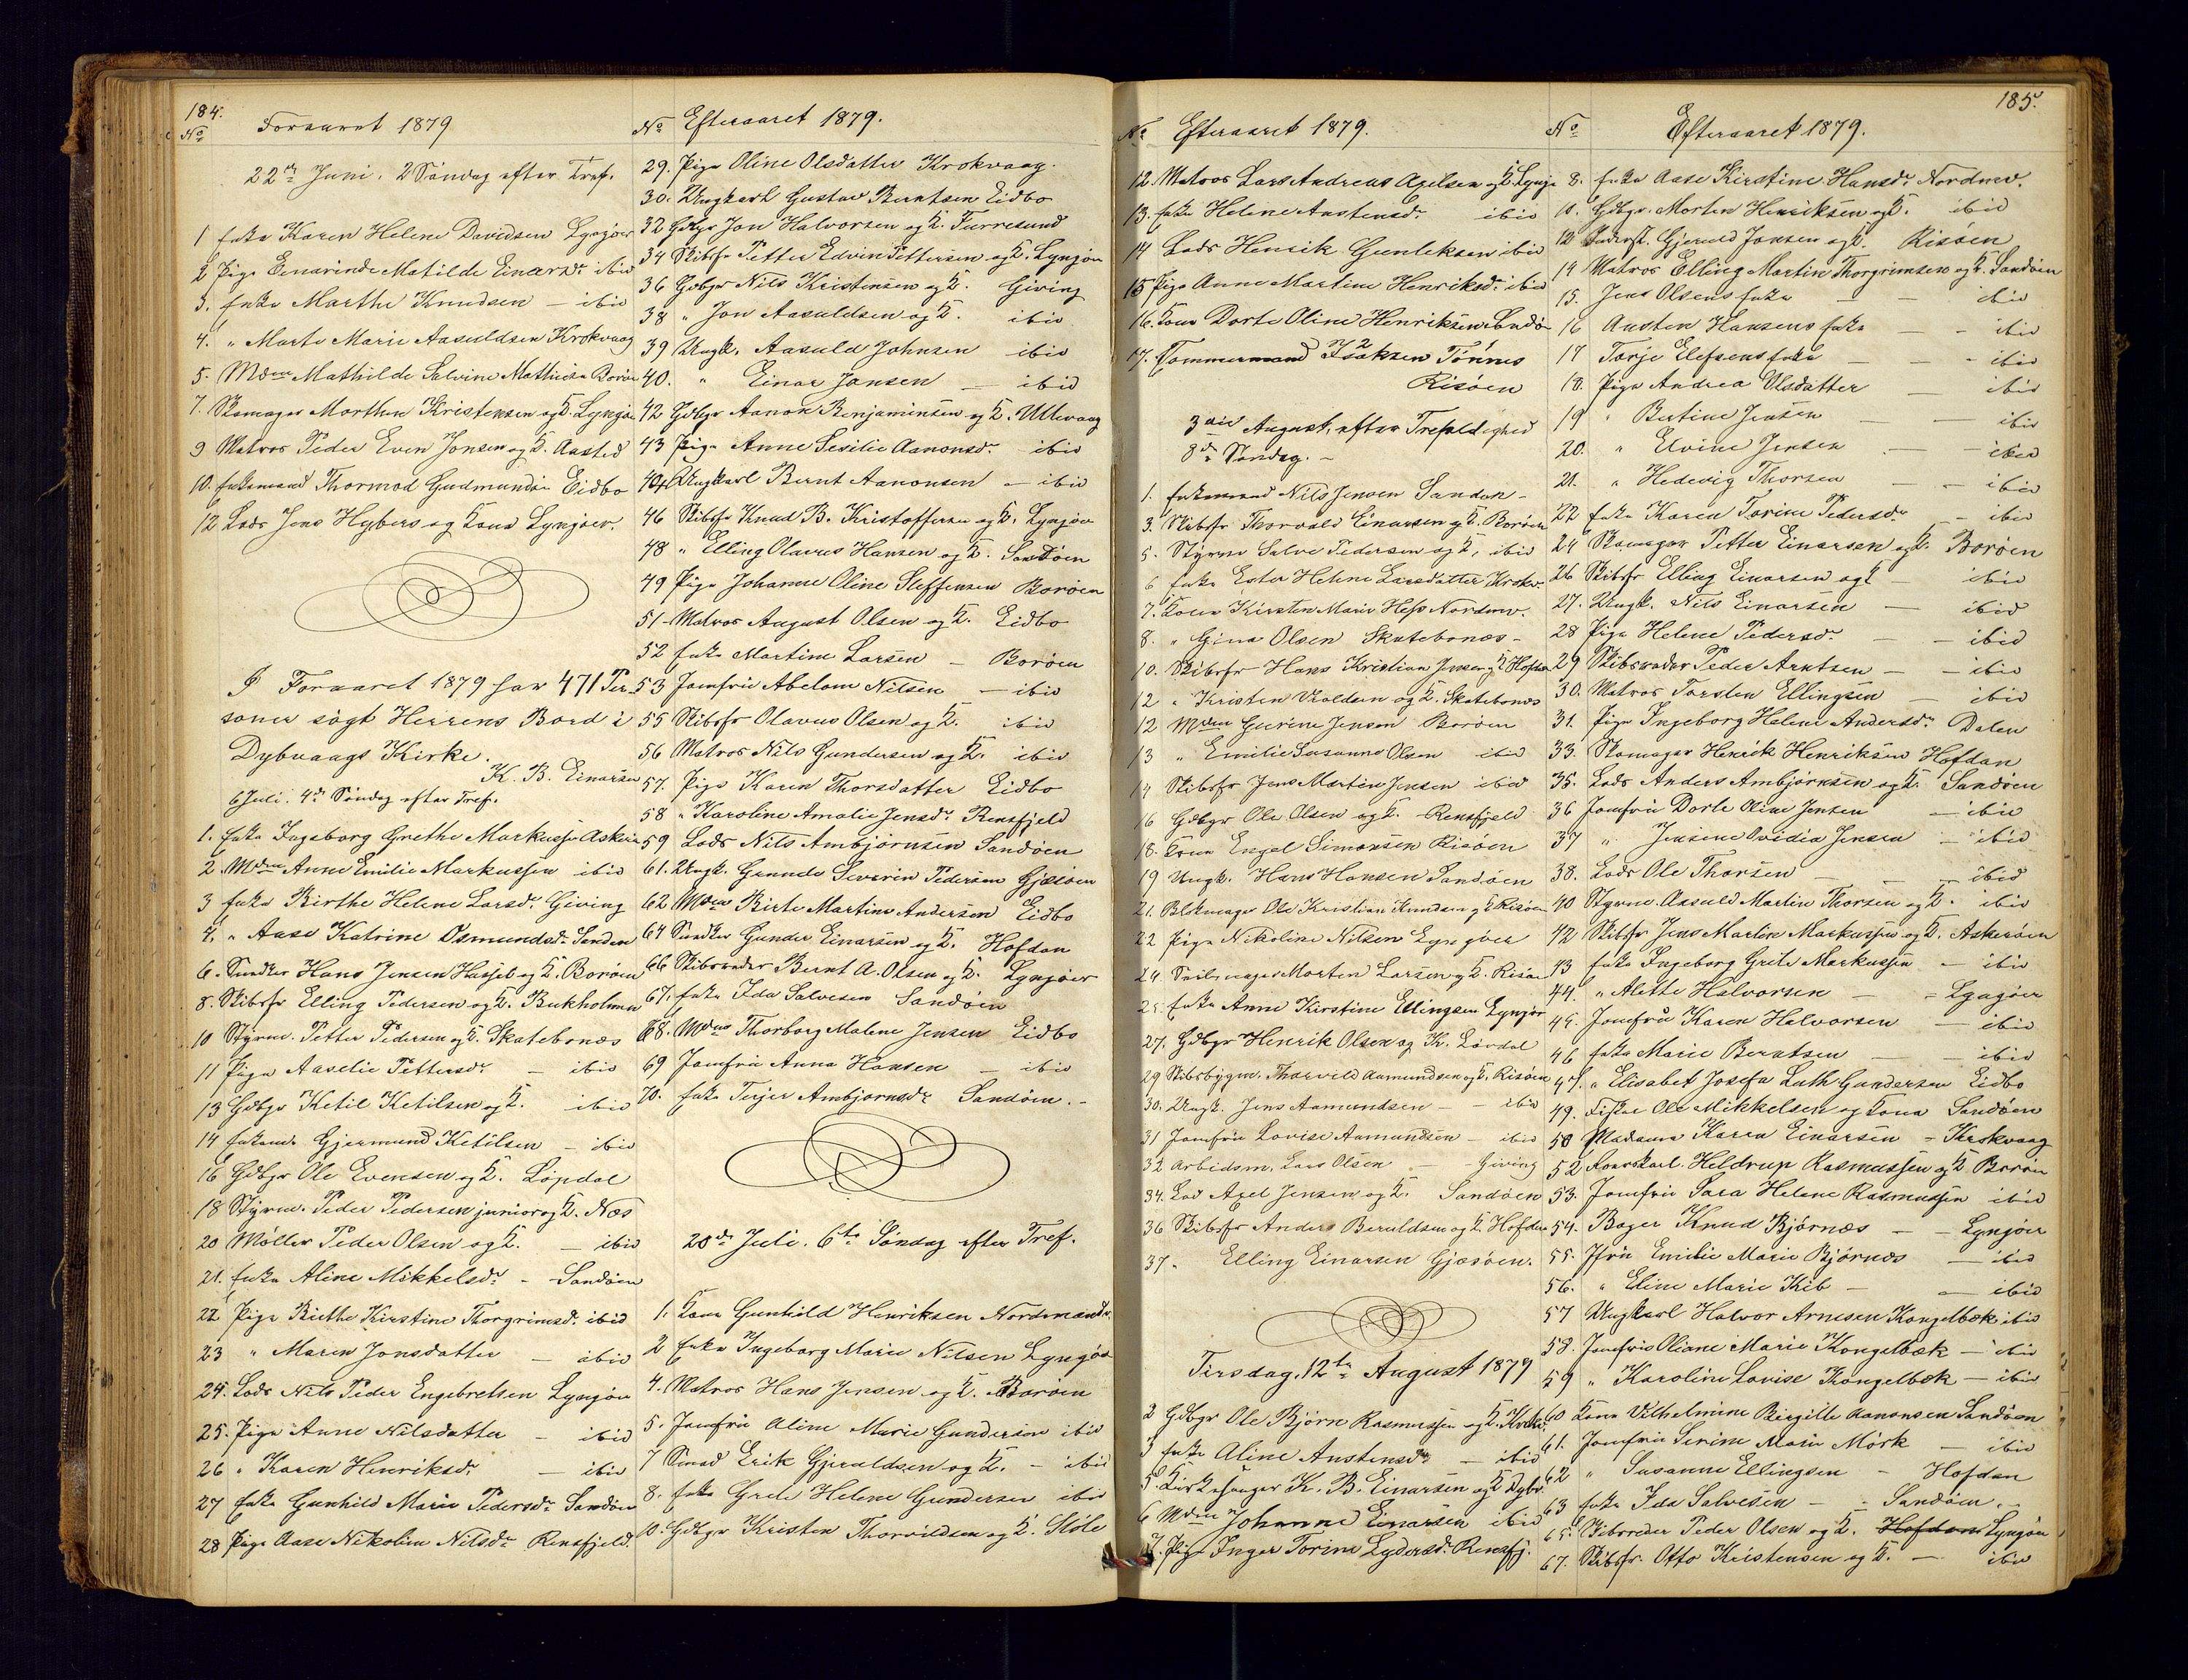 184.
No Foraaret 1879
22de Juni. 2 Søndag efter Tref.
1 Enke Karen Helene Davidsen Lyngøer
2 Pige Matilde Einarsdr ibid
3. Enke Marthe Knudsen — ibid
4. " Marte Marie Aasuldsen Krokvaag
5. Mdm Mathilde Salvine Mathiesen Borøen
7. Skomager Morthen Kristensen og K. Lyngøer
9 Matros Peder Even Jonsen og K. Aasted
10. Enkemand Thormod Gudmundsen Eidbo
12 Lods Jens Hybers og Kona Lyngøer.
I Foraaret 1879 har 471 Per-
soner søgt Herrens Bord i
Dybvaags Kirke.
K. B. Einarsen
6 Juli. 4de Søndag efter Tref.
1. Enke Ingeborg Grethe Markussen Askerøen
2. Mdm Anne Emilie Markussen ibid
3 Enke Birthe Helene Larsdr. Giving
4. " Aase Katrine Osmundsdr Sandøen
6. Hans Jensen Hassel og K. Borøen
8. Skibsfr Elling Pedersen og K. Bukholmen
10 Styrm. Petter Pedersen og K. Skatebonæs
11 Pige Aaselie Pettersdr. — ibid
13 Gdbgr Ketil Ketilsen og K. ibid
14 Enkem. Gjermund Ketilsen — ibid
16 Gdbgr Ole Evensen og K. Løpdal
18 Styrm. Peder Pedersen junior og K. Næs
20 Møller Peder Olsen og K. — ibid
21. Enke Aline Mikkelsdr. - Sandøen
22 Pige Birthe Kirstine Thorgrimsdr. ibid
23 " Maren Jonsdatter — ibid
24. Lods Nils Peder Engebretsen Lyngøer
25. Pige Anne Nilsdatter — ibid
26 " Karen Henriksdr. — ibid
27 Enke Gunhild Marie Pedersdr Sandøen
28 Pige Aase Nikoline Nilsdr Rensfjeld.
No Efteraaret 1879.
29. Pige Oline Olsdatter Krokvaag.
30. Ungkarl Gustav Berntsen Eidbo
32 Gdbgr Jon Halvorsen og K. Furresund
34 Skibsfr Petter Edvin Pettersen og K. Lyngøer
36 Gdbgr Nils Kristensen og K. Giving
38 " Jon Aasuldsen og K. ibid
39 Ungk. Aasuld Johnsen ibid
40. " Einar Jansen — ibid
42 Gdbgr Aanon Benjaminsen og K. Utlevaag
43 Pige Anne Sesilie Aanonsdr. ibid
44 Ungkarl Bernt Aanonsen — ibid
46 Skibsfr Knud B. Kristoffersen og K. Lyngøer
48 " Elling Olavus Hansen og K. Sandøen
49 Pige Johanne Oline Steffensen Borøen
51 Matros August Olsen og K. Eidbo
52 Enke Martine Larsen — Borøen
53 Jomfru Abelone Nilsen — ibid
55 Skibsfr Olavus Olsen og K. ibid
56 Matros Nils Gundersen og K. ibid
57. Pige Karen Thorsdatter Eidbo
58 " Karoline Amalie Jensdr. Rensfjeld
59 Lods Nils Ambjørnsen Sandøen
61. Ungk. Severin Pedersen Gjæsøen
62 Mdm Birte Martine Andersen Eidbo
64 Gunder Einarsen og K. Hofdan
66 Skibsreder Bernt A. Olsen og K. Lyngøer
67. Enke Ida Salvesen Sandøen
68. Mdm Thorborg Malene Jensen Eidbo
69 Jomfru Anna Hansen — ibid
70. Enke Terjer Ambjørnsdr Sandøen. -
20de Juli. 6te Søndag efter Tref.
1. Kona Gunhild Henriksen Nordmandv.
2 Enke Ingeborg Marie Nilsen Lyngøer
4. Matros Hans Jensen og K. Borøen
5. Jomfru Aline Marie Gundersen ibid
7 Erik Gjeruldsen og K. - ibid
8. Enke Grete Helene Gundersen ibid
10. Gdbgr Kristen Thorvildsen og K. Støle
No Efteraaret 1879.
12. Matros Lars Andreas Axelsen og K. Lyngø
13. Enke Helene Austensdr. ibid
14 Lods Henrik Gunleksen ibid
15 Pige Anne Martine Henriksdr. ibid
16. Kona Dorte Oline Henriksen Sandø
17. Tømmermand Isaksen Tønnes
Risøen
3die August, efter Trefoldighed
8de Søndag. -
1. Enkemand Nils Jensen Sandøen -
3. Skibsfr Thorvald Einarsen og K. Borøen
5. Styrm Salve Pedersen og K. ibid
6 Enke Ester Helene Larsdatter Krokv.
7. Kona Kirsten Marie Hess Nordmv.
8. " Gina Olsen Skatebonæs -
10. Skibsfr Hans Kristian Jensen og K. Hofdan
12 " Kristen Knudsen og K. Skatebonæs
12 Mdm Gurine Jensen Borøen
13 " Emilie Susanne Olsen ibid
14 Skibsfr Jens Martin Jensen ibid
16 Gdbgr Ole Olsen og K. Rensfjeld
18. Kona Engel Simonsen Risøen
19 Ungk. Hans Hansen Sandøen
21. Blokmager Ole Kristian Knudsen og K. Risøen
22 Pige Nikoline Nilsen Lyngøer
24. Seilmager Morten Larsen og K. Risøen
25. Enke Anne Kirstine Ellingsen Lyngør
27. Gdbgr Henrik Olsen og K. Løvdal
29 Skibsbygm. Thorvild Aamundsen og K. Risøen
30. Ungk. Jens Aamundsen — - ibid
31 Jomfru Lovise Aamundsen — ibid
32 Arbeidsm. Lars Olsen — - Giving
34. Lod Axel Jensen og K. Sandøen
36 Skibsfr Anders Beruldsen og K. Hofdan
37. Elling Einarsen Gjæsøen.
Tirsdag, 12te August 1879
2 Gdbgr Ole Bjørn Rasmussen og K. Krokv.
3 Enke Aline Austensdr — ibid
5 Kirkesanger K. B. Einarsen og K Dybv.
6 Mdm Johanne Einarsen ibid
7. Pige Inger Torine Lydersdr. Rensfj.
185.
No Efteraaret 1879.
8. Enke Aase Kirstine Hansdr. Nordmv.
10. Gdbgr. Morten Henriksen og K. ibid
12 Inderst. Gjeruld Jonsen og K. Risøen
14 Matros Elling Martin Thorgrimsen og K. Sandøen
15. Jens Olsens Enke — — ibid
16 Austen Hansens Enke — - ibid
17 Torje Elefsens Enke — - ibid
18. Pige Andrea Olsdatter — ibid
19 " Bertine Jensen — — ibid
20. " Elvine Jensen — - ibid
21. " Hedevig Thorsen — — ibid
22 Enke Karen Torine Pedersdr — ibid
24 Skomager Petter Einarsen og K. Borøen
26 Skibsfr Elling Einarsen og K — ibid
27. Ungk. Nils Einarsen — ibid
28 Pige Helene Pedersdr. — - ibid
29 Skibsreder Peder Arntsen — - ibid
30. Matros Torsten Ellingsen — ibid
31. Pige Ingeborg Helene Andersdr Dalen
33. Skomager Henrik Henriksen Hofdan
35. Lods Anders Ambjørnsen og K. Sandøen
36 Jomfru Dorte Oline Jensen — ibid
37 " Jensine Ovidia Jensen — ibid
38. Lods Ole Thorsen — — ibid
40 Styrm. Aasuld Martin Thorsen og K. ibid
42 Skibsfr Jens Martin Markussen og K. Askerøen
43 Enke Ingeborg Grete Markussen — ibid
44. " Alette Halvorsen — - Lyngøer
45. Jomfru Karen Halvorsen — ibid
46 Enke Marie Berntsen — — ibid
47. " Elisabet Josefa Luth Gundersen Eidbo
49. Fisker Ole Mikkelsen og Kona Sandøen
50 Madame Karen Einarsen - Krokvaag
52 Heldrup Rasmussen og K Borøen
53. Jomfru Sara Helene Rasmussen ibid
54. Bager Knud Bjørnæs — - Lyngøer
55. Jfru Emilie Marie Bjørnæs — ibid
56. " Eline Marie Kib — — ibid
57 Ungkarl Halvor Arnesen Kongelbæk ibid
58. Jomfru Oliane Marie Kongelbæk — ibid
59 " Karoline Lovise Kongelbæk — ibid
60 Kona Vilhelmine Birgitte Aanonsen Sandøen
61. Jomfru Serine Marie Mørk — ibid
62 " Susanne Ellingsen - Hofdan
63 Enke Ida Salvesen — - Sandøen. -
65. Skibsreder Peder Olsen og K. Hofdan Lyngøer
67. Skibsfr. Otto Kristensen og K. — ibid